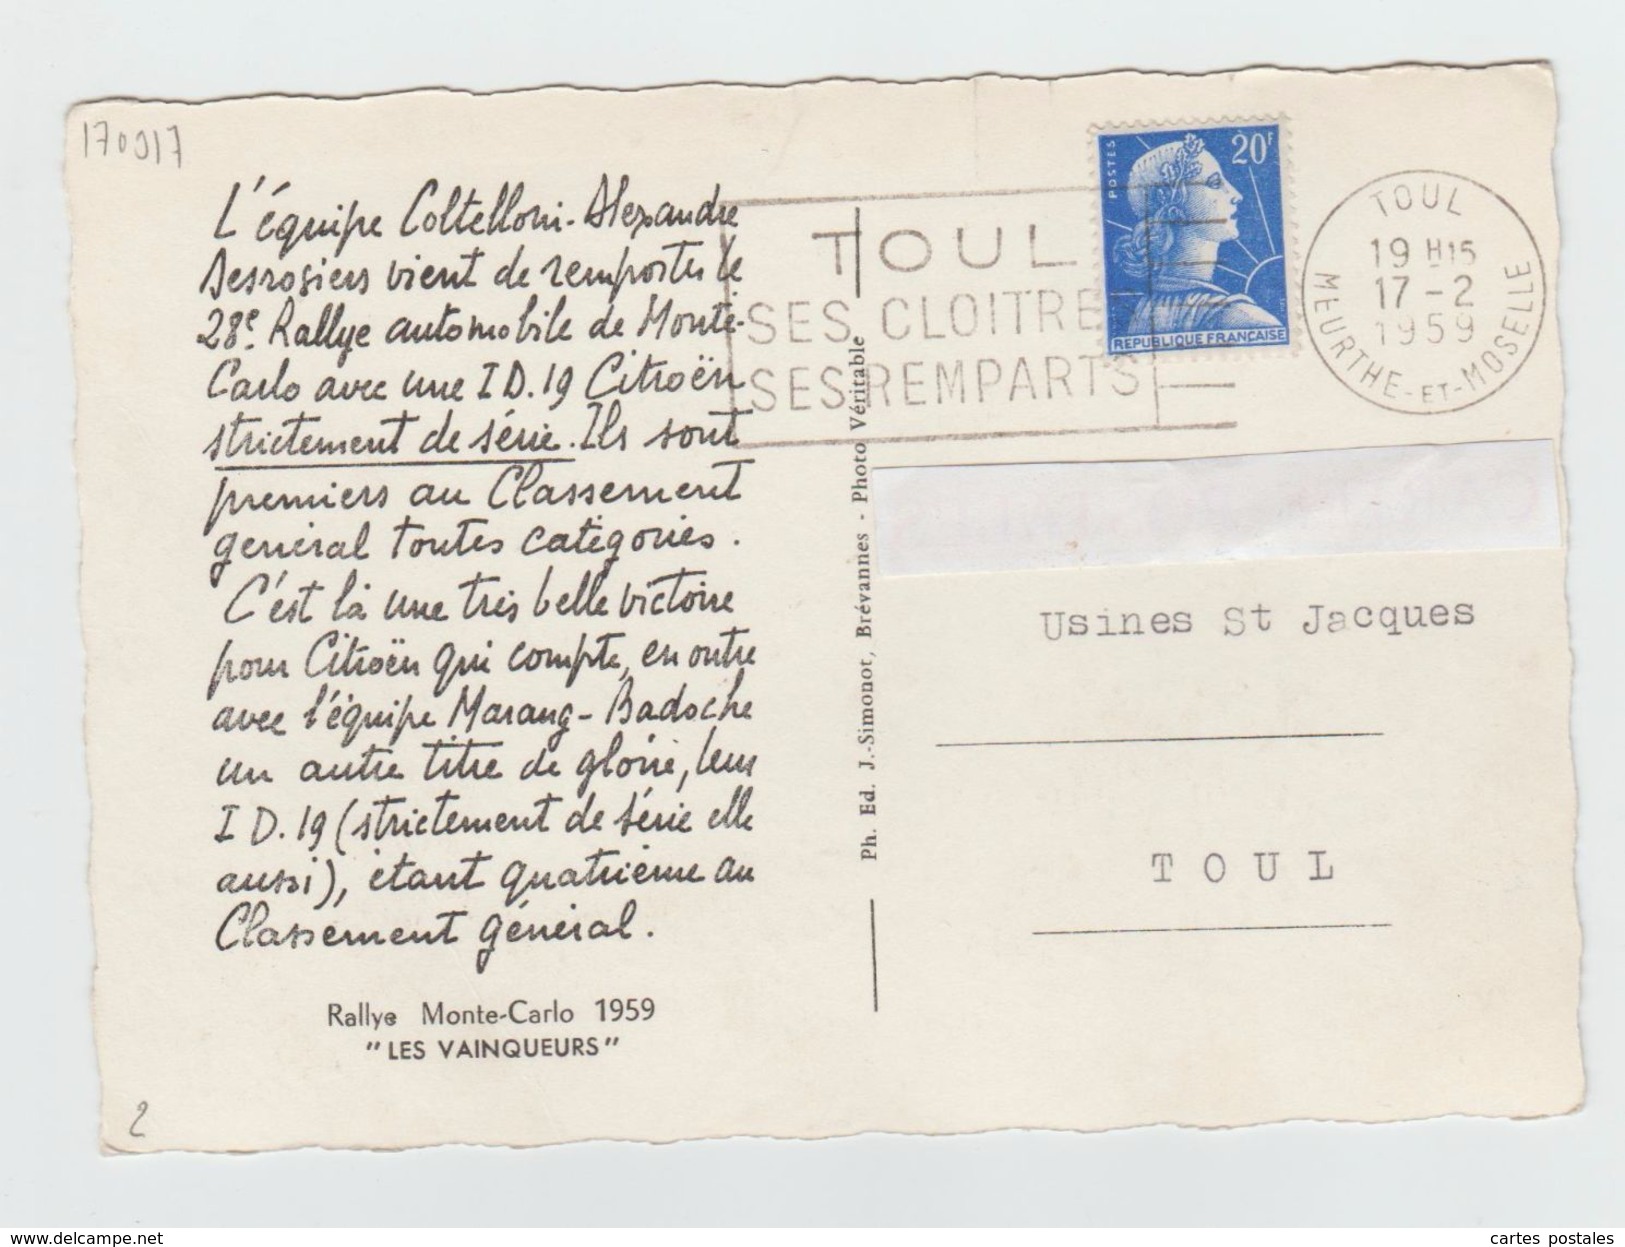 170917
L'équipe Coltelloni-Alexandre
Desrosiers vient de remporter le
28e. Rallye automobile de Monte-
Carlo avec une ID.19 Citroën
strictement de série. Ils sont
premiers au Classement
général toutes catégories.
C'est là une très belle victoire
pour Citroën qui compte, en outre
avec l'équipe Marang-Badoche
un autre titre de gloire, leur
ID.19 (strictement de série elle
aussi), étant quatrième au
Classement général.
Rallye Monte-Carlo 1959
"LES VAINQUEURS"
2
Ph. Ed. J.-Simonot, Brévannes - Photo Véritable
TOUL
SES CLOITRES
SES REMPARTS
POSTES
20F
REPUBLIQUE FRANÇAISE
TOUL
19 H15
17-2
1959
MEURTHE-ET-MOSELLE
Usines St Jacques
TOUL
www.delcampe.net
cartes postales